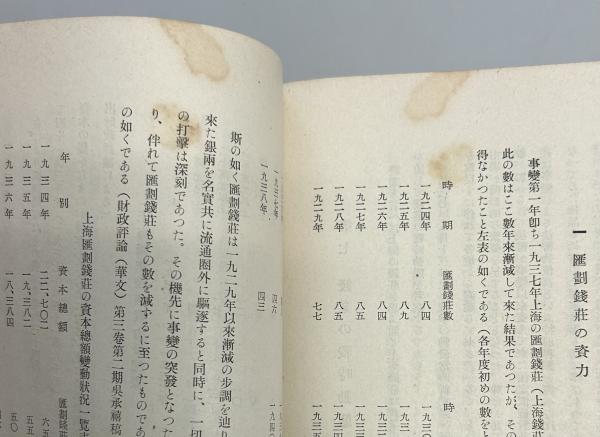 一 匯劃錢莊の資力
事變第一年卽ち一九三七年上海の匯劃錢莊(上海錢莊
此の數はここ數年來漸減して來た結果であつたが、その
得なかつたこと左表の如くである(各年度初めの數を
時期 匯劃錢莊數 時
一九二四年 八四 一九三〇
一九二五年 八四 一九三一
一九二六年 八四 一九三
一九二七年 八五 一九三
一九二八年 八五 一九三
一九二九年 七七 一九三五
一九三七年 四六
一九三八年 四三
斯の如く匯劃錢莊は一九二九年以來漸減の步調を辿り
來た銀兩を名實共に流通圈外に驅逐すると同時に、一切
の打擊は深刻であつた。その機先に事變の突發となつた
り、伴れて匯劃錢莊もその數を減ずるに至つたものであ
の如くである(財政評論(華文)第三卷第二期吳承禧稿
上海匯劃錢莊の資本總額變動狀況一覽
年別 資本總額 匯劃錢莊
一九三四年 二二、七〇二 六五
一九三五年 一九、三八二 五五
一九三六年 一八、三八四 五〇